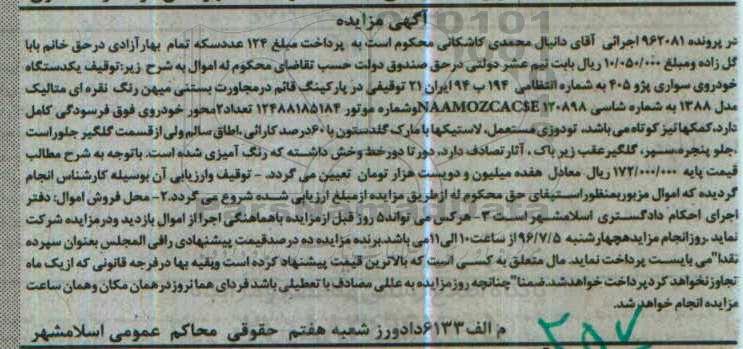 آگهی مزایده
در پرونده ۹۶۲۰۸۱ اجرائی آقای دانیال محمدی کاشکانی محکوم است به پرداخت مبلغ ۱۲۴ عددسکه تمام بهارآزادی درحق خانم بابا
گل زاده ومبلغ ۱۰/۰۵۰/۰۰۰ ریال بابت نیم عشر دولتی درحق صندوق دولت حسب تقاضای محکوم له اموال به شرح زیر:توقیف یکدستگاه
خودروی سواری پژو ۴۰۵ به شماره انتظامی ۱۹۴ ب ۹۴ ایران ۲۱ توقیفی در پارکینگ قائم درمجاورت بستنی میهن رنگ نقره ای متالیک
مدل ۱۳۸۸ به شماره شاسی NAAMOZCAC$E ۱۲۰۸۹۸وشماره موتور ۱۲۴۸۸۱۸۵۱۸۴ تعداد۲محور خودروی فوق فرسودگی کامل
دارد،کمکهانیز کوتاه می باشد، تودوزی مستعمل، لاستیکها بامارک گلدستون با ۶۰درصد کارائی ،اطاق سالم ولی ازقسمت گلگیر جلوراست
،جلو پنجره،سپر، گلگیرعقب زیر باک ، آثار تصادف دارد، دور تا دورخط وخش داشته که رنگ آمیزی شده است. باتوجه به شرح مطالب
قیمت پایه ۱۷۲/۰۰۰/۰۰۰ ریال معادل هفده میلیون و دویست هزار تومان تعیین می گردد. - توقیف وارزیابی آن بوسیله کارشناس انجام
گردیده که اموال مزبوربمنظوراستیفای حق محکوم له ازطریق مزایده ازمبلغ ارزیابی شده شروع می گردد.۲- محل فروش اموال: دفتر
اجرای احکام دادگستری اسلامشهر است ۳- هرکس می تواند۵ روز قبل ازمزایده باهماهنگی اجرا از اموال بازدید ودرمزایده شرکت
نماید .روزانجام مزایدهچهارشنبه ۹۶/۷/۵از ساعت۱۰الی۱۱می باشد.برنده مزایده ده درصدقیمت پیشنهادی رافی المجلس بعنوان سپرده
نقدا"می بایست پرداخت نماید. مال متعلق به کسی است که بالاترین قیمت پیشنهاد کرده است وبقیه بها درفرجه قانونی که ازیک ماه
تجاوزنخواهد کردپرداخت خواهدشد.ضمنا"چنانچه روزمزایده به عللی مصادف با تعطیلی باشد فردای همانروزدرهمان مکان وهمان ساعت
مزایده انجام خواهدشد.
م الف۶۱۳۳دادورز شعبه هفتم حقوقی محاکم عمومی اسلامشهر